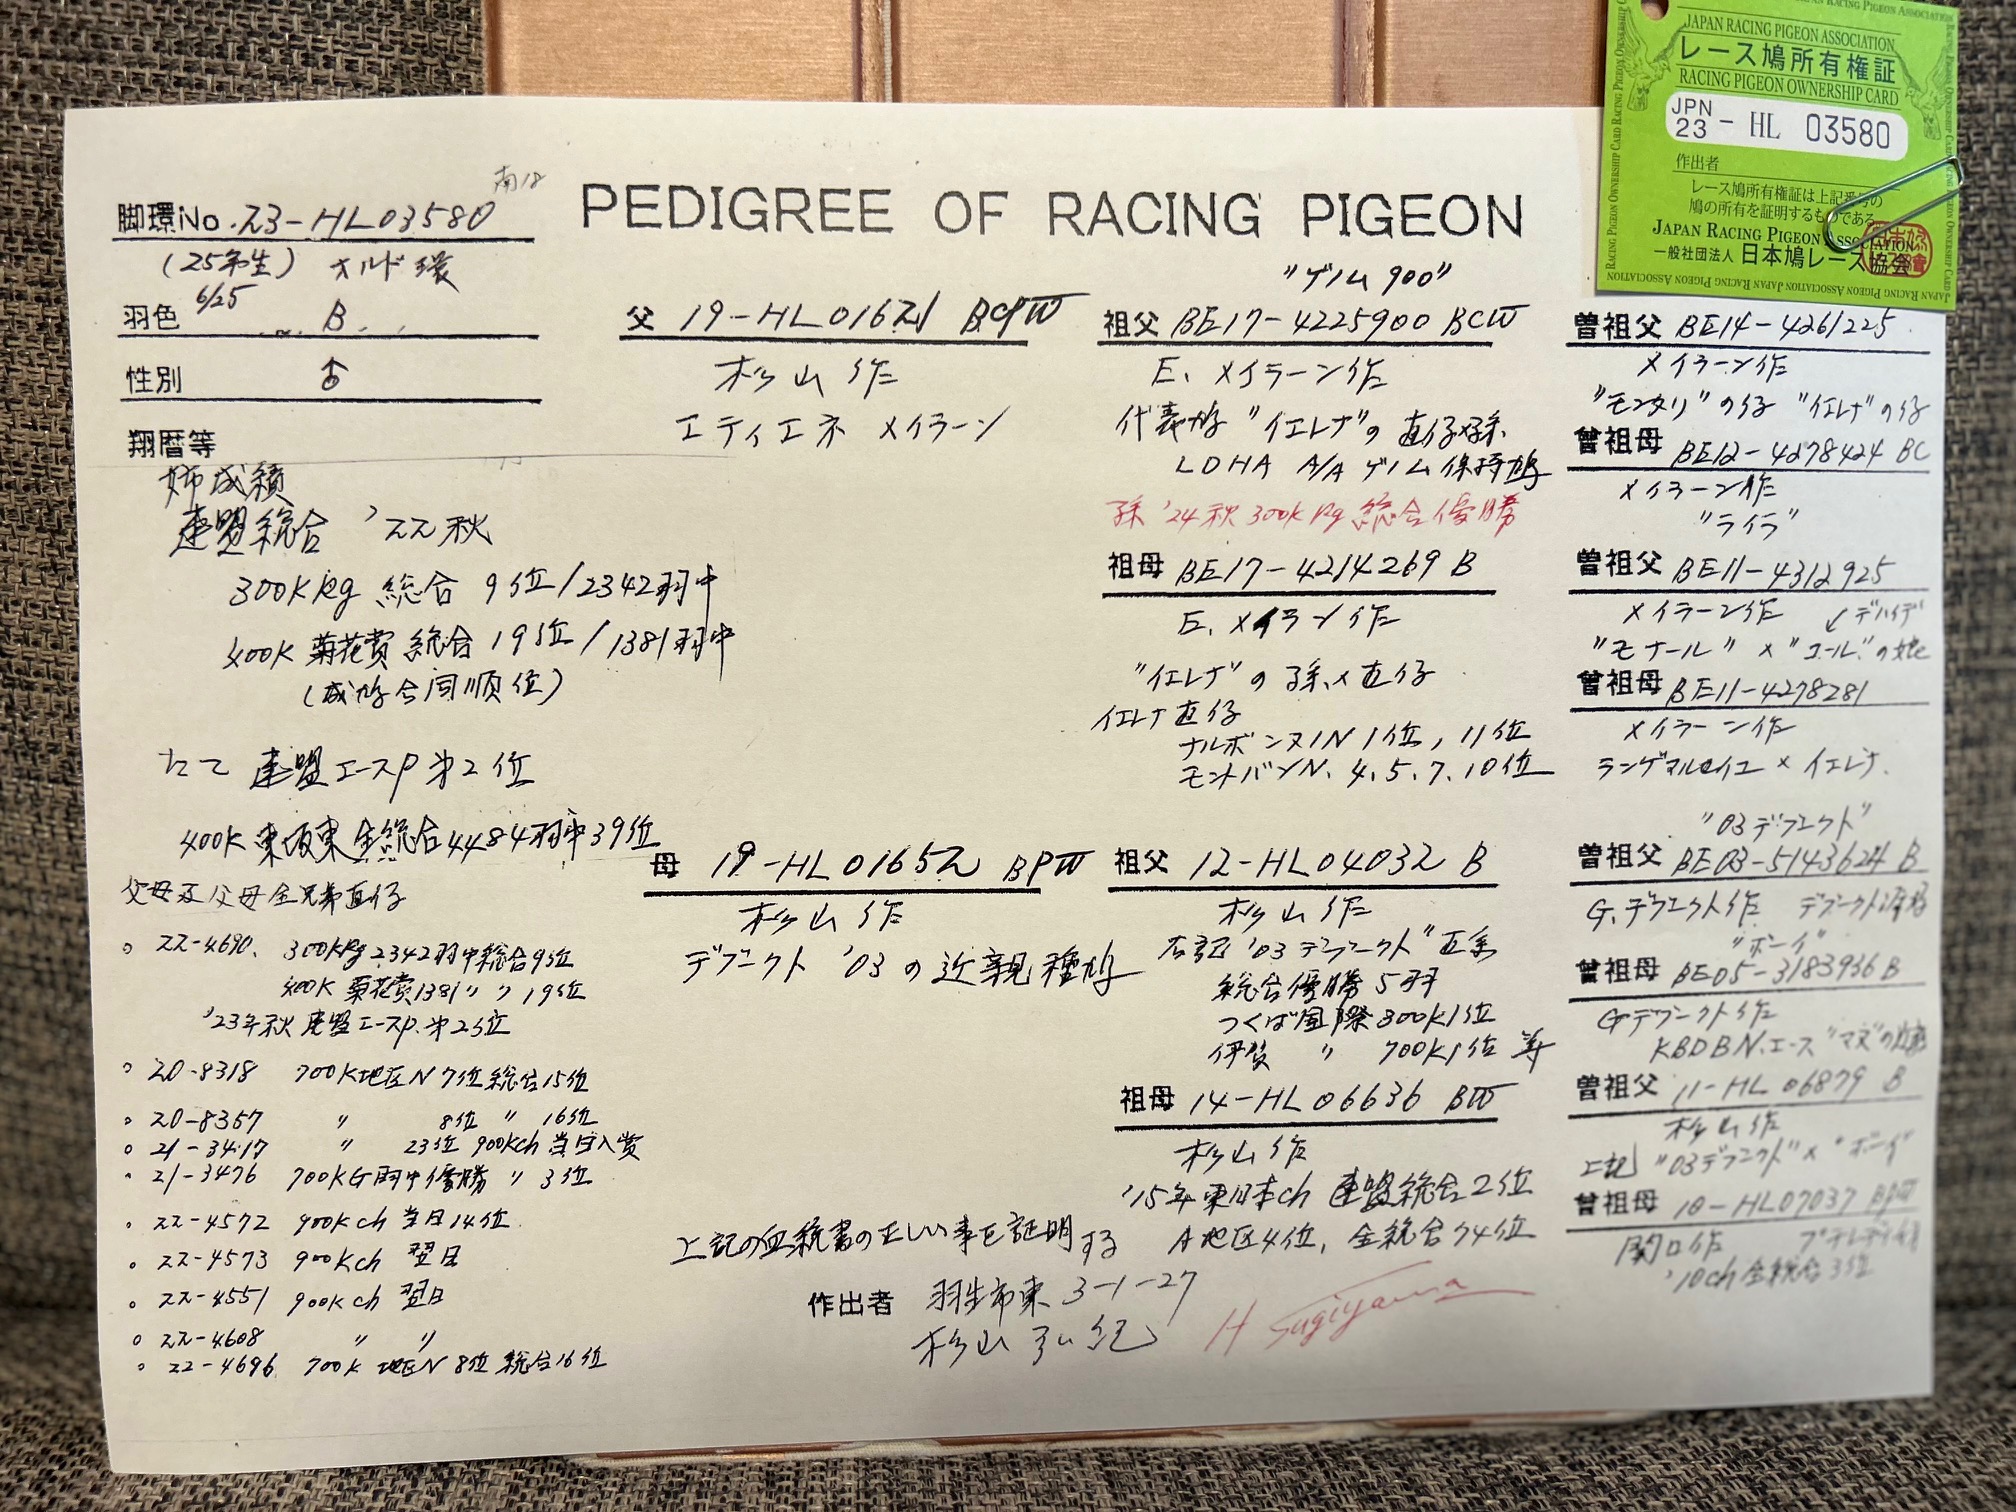 JAPAN RACING PIGEON ASSOCIATION
レース鳩所有権証
RACING PIGEON OWNERSHIP CARD
JPN 23 - HL 03580
作出者
レース鳩所有権証は上記番号の
鳩の所有を証明するものである
JAPAN RACING PIGEON ASSOCIATION
一般社団法人 日本鳩レース協会
南18
PEDIGREE OF RACING PIGEON
脚環No. 23-HL03580
(25年生) オルド環
6/25
羽色 B
性別 ♂
翔暦等
姉成績
連盟総合 '22秋
300KRg 総合 9位/2342羽中
400K 菊花賞 総合 19位/1381羽中
(成鳩合同順位)
たて 連盟エースP 第2位
400K 東坂東 全総合4484羽中39位
父母及父母全兄弟直仔
○ 22-4690. 300KRg 2342羽中総合9位
400K 菊花賞1381〃 〃 19位
'23年秋 連盟エースP. 第2位
○ 20-8318 700K地区N 7位 総合15位
○ 20-8357 〃 8位 〃 16位
○ 21-3417 〃 23位 900Kch 当日入賞
○ 21-3476 700KG羽中優勝 〃 3位
○ 22-4572 900Kch 当日14位
○ 22-4573 900Kch 翌日
○ 22-4551 900Kch 翌日
○ 22-4608 〃 〃
○ 22-4696 700K 地区N 8位 総合16位
父 19-HL01621 BCPW
杉山 作
エティエネ メイラーン
母 19-HL01652 BPW
杉山 作
デフニクト '03の近親種鳩
"ゲノム900"
祖父 BE17-4225900 BCW
E. メイラーン作
代表鳩 "イエレナ"の 直仔×孫
LDHA A/A ゲノム 保持鳩
孫 '24秋 300K Rg 総合優勝
祖母 BE17-4214269 B
E. メイラーン作
"イエレナ"の 孫×直仔
イエレナ直仔
ナルボンヌIN 1位, 11位
モントバンN. 4. 5. 7. 10位
祖父 12-HL04032 B
杉山 作
右記 '03デフニクト" 直系
総合優勝 5羽
つくば国際 300K1位
伊賀 〃 700K1位 等
祖母 14-HL06636 BW
杉山 作
'15年東日本ch 連盟総合2位
A地区4位, 全総合74位
曽祖父 BE14-4261225
メイラーン作
"モンタリ"の仔 "イエレナ"の仔
曽祖母 BE12-4278424 BC
メイラーン作
"ライラ"
曽祖父 BE11-4312925
メイラーン作
"モナール" × "ゴールド"の娘
曽祖母 BE11-4278281
メイラーン作
× イエレナ.
"03デフニクト"
曽祖父 BE03-5143624 B
G. デフニクト作
"ボーイ"
曽祖母 BE05-3183936 B
Gデフニクト作
KBDB N.エース
曽祖父 11-HL 06879 B
杉山 作
上記 "03デフニクト" ×
曽祖母 10-HL07037 BPW
関口作
'10ch 全総合3位
上記の血統書の正しい事を証明する
作出者 羽生市東 3-1-27
杉山 弘紀
H Sugiyama